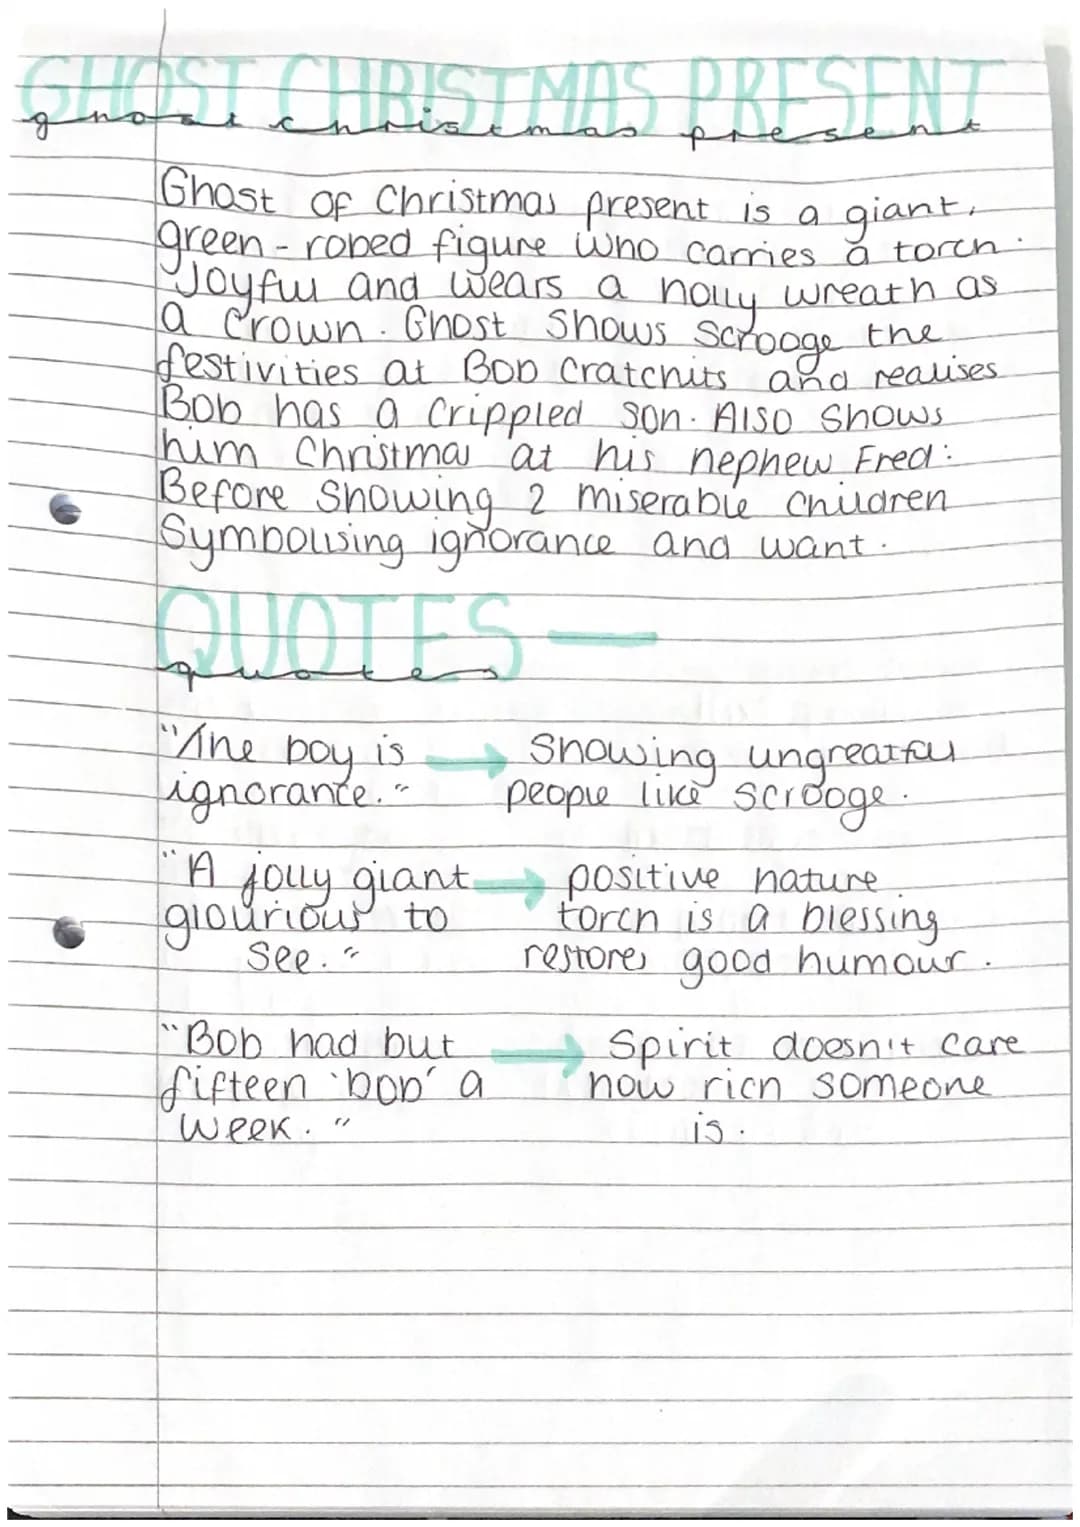 GHOST CHRISTMAS PRESENT
ghost christmas present
Ghost of Christmas present is a giant,
green - robed figure who carries a torch.
Joyful and wears a holly wreath as
a crown. Ghost shows Scrooge the
festivities at Bob Cratchits and realises
Bob has a crippled son. Also shows
him Christmas at his nephew Fred.
Before showing 2 miserable children
Symbolising ignorance and want.
QUOTES —
quotes
"The boy is → Showing ungreatful
ignorance." people like scrooge.
"A jolly giant → positive nature.
glourious to torch is a blessing
see." restores good humour.
"Bob had but → Spirit doesn't care
fifteen 'bob' a how rich someone
week." is.